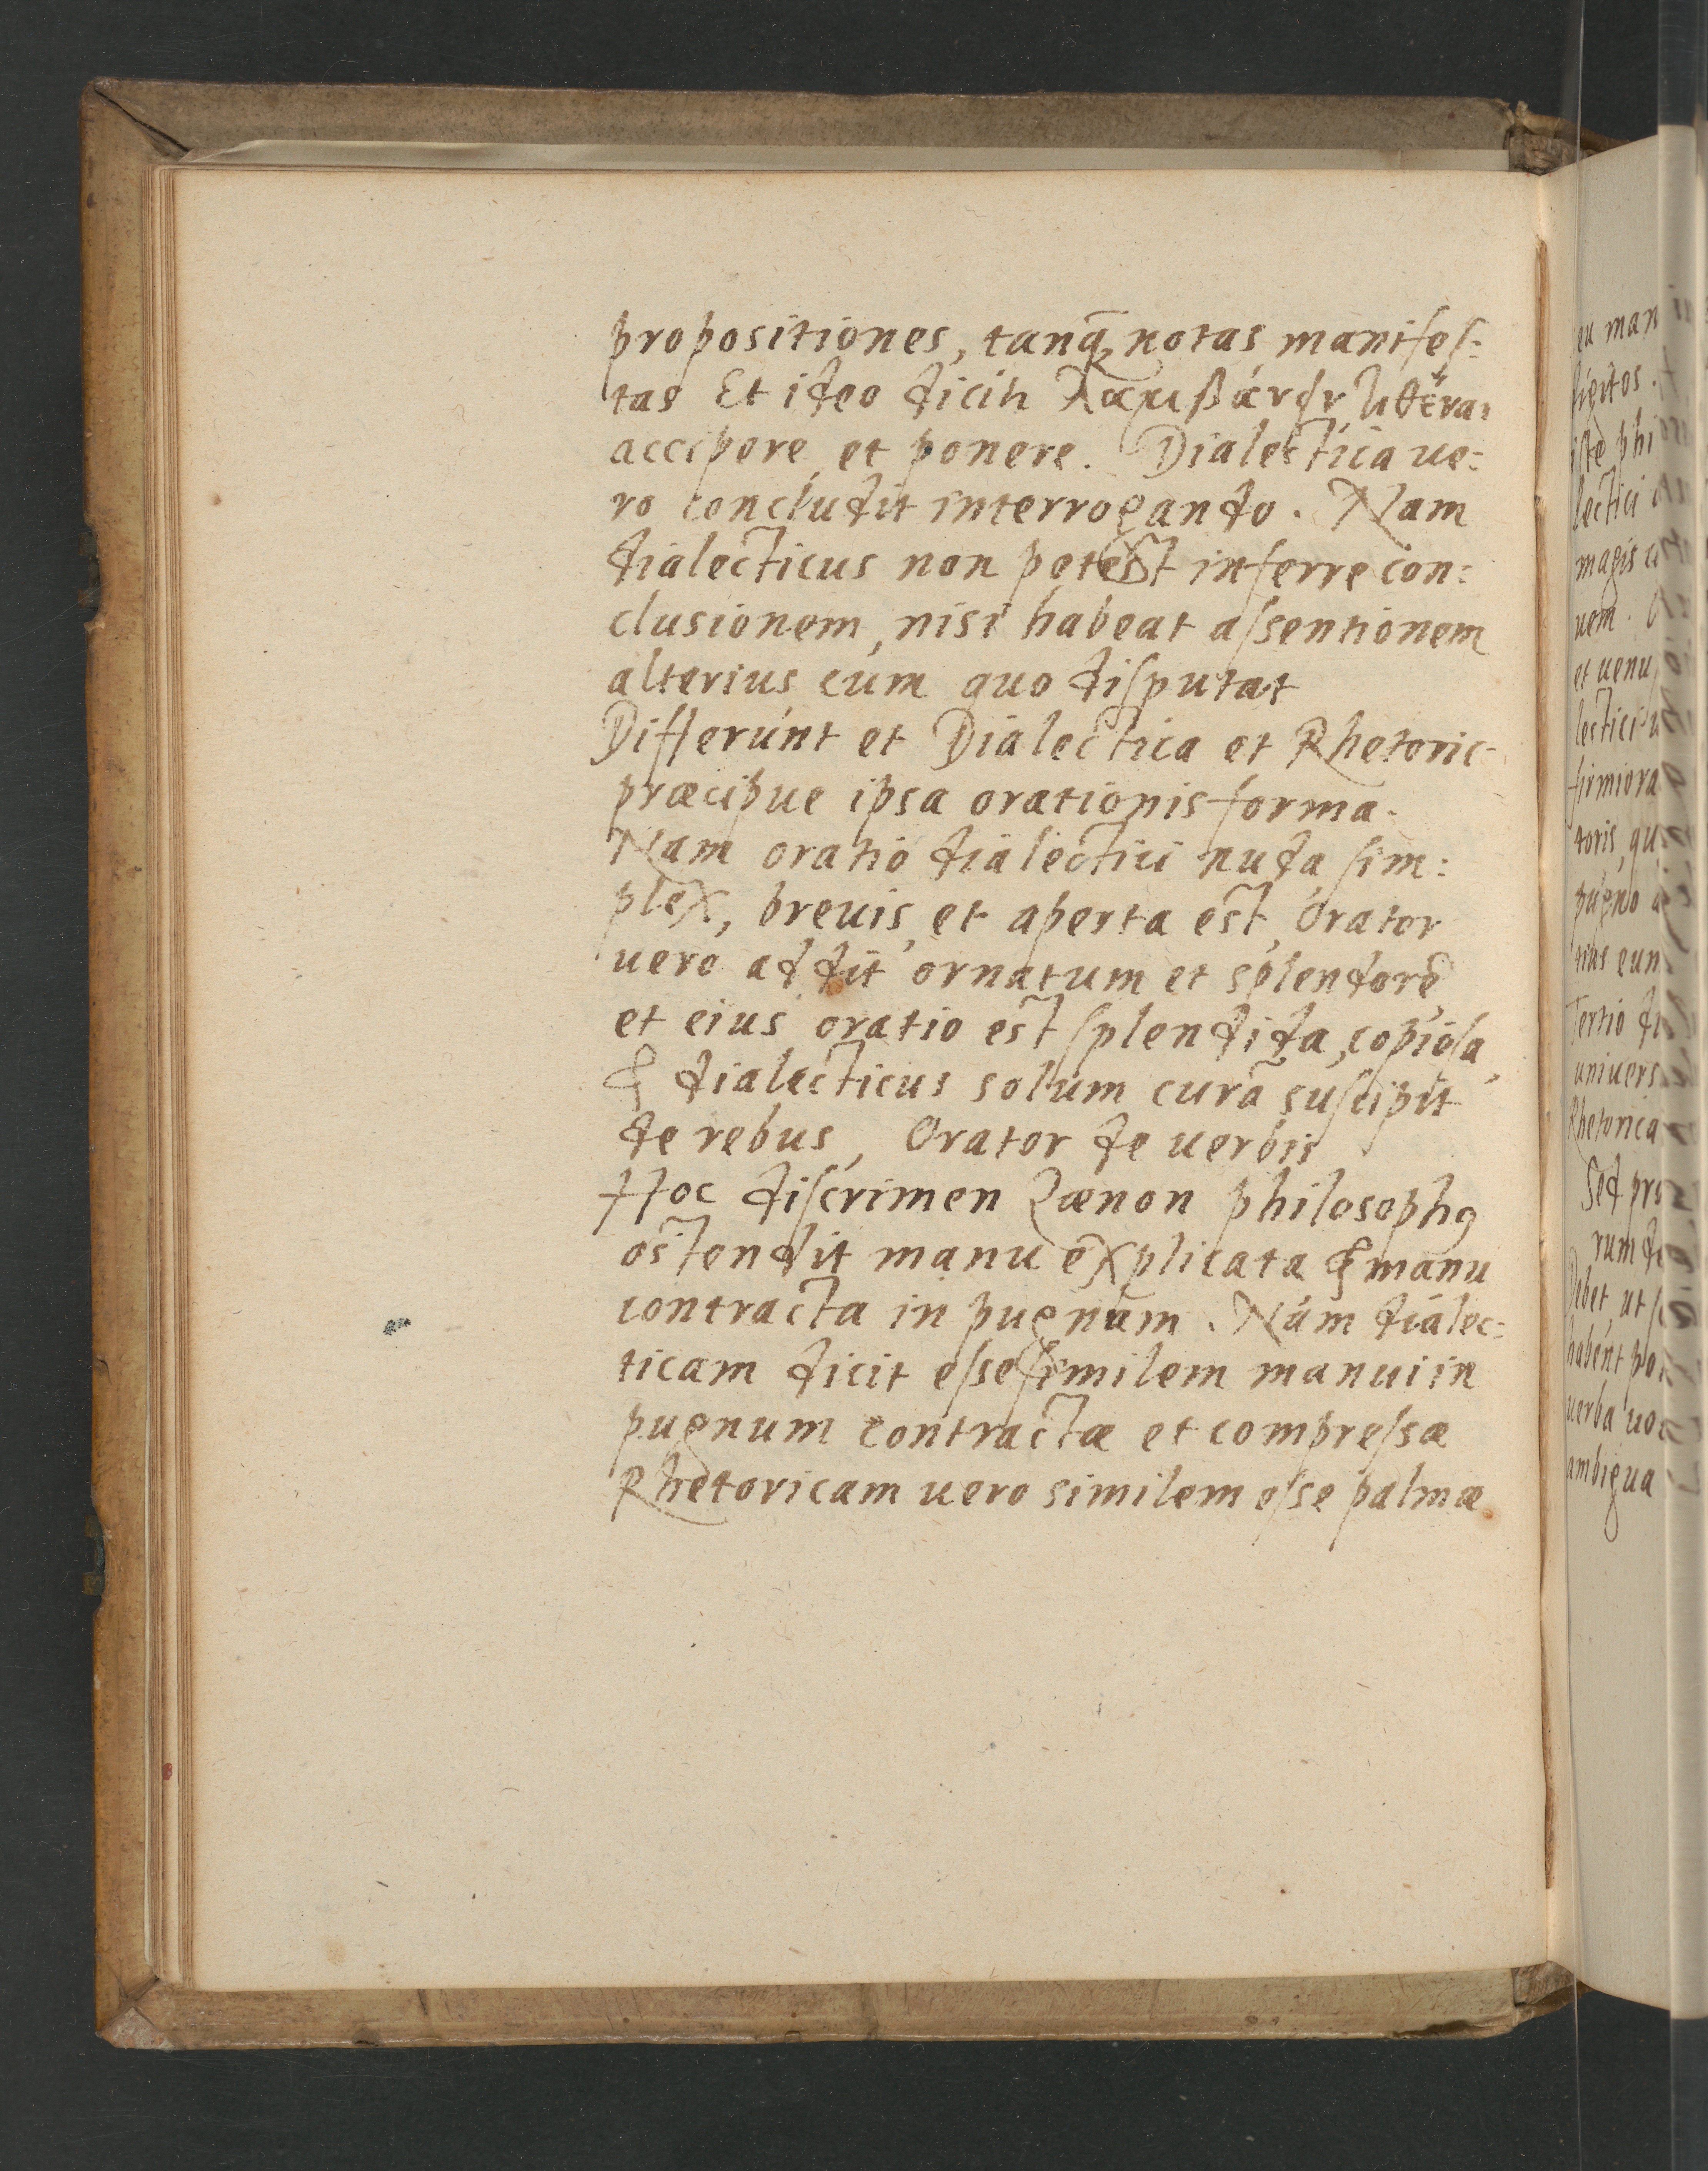 propositiones, tanq̃ notas manifeſ:
tas Et ideo dicit λαμβάνειν
accipere, et ponere. Dialectica ue:
ro concludit interrogando. Nam
dialecticus non potest inferre con:
clusionem, nisi habeat aſsentionem
alterius cum quo diſputat
Differunt et Dialectica et Rhetoric-
præcipue ipsa orationis forma.
Nam oratio dialectici nuda, ſim:
plex, breuis, et aperta est, Orator
uero addit ornatum et splendorẽ
et eius oratio est ſplendida, copioſa,
& dialecticus solum curã suſcipit
de rebus, Orator de uerbis
Hoc diſcrimen Zænon philosophꝯ
ostendit manu explicata & manu
contracta in pugnum. Nam dialec:
ticam dicit eſse ſimilem manui in
pugnum contractæ et compreſsæ
Rhetoricam uero similem eſse palmæ
eu man
iste phi
lectici
magis
uem.
et uenu
firmiora
toris, qu
pugno
Tertio di
univers
Rhetorica
Sed pr
rum d
Debet, ut
habent po
uerba uo
ambigua